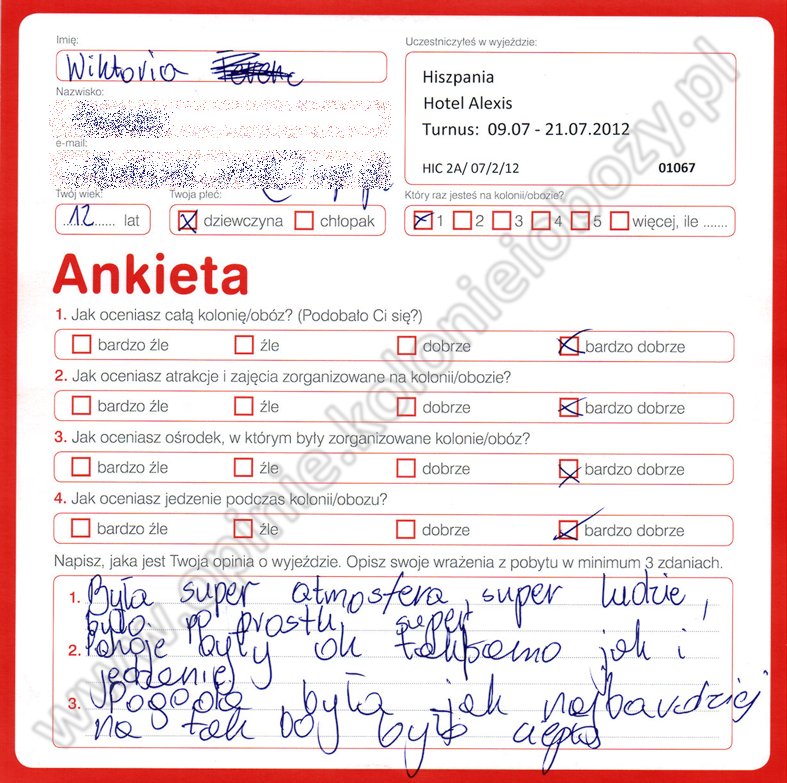 Imię:
Wiktoria
Uczestniczyłeś w wyjeździe:
Hiszpania
Hotel Alexis
Turnus: 09.07 - 21.07.2012
HIC 2A/ 07/2/12 01067
Nazwisko:
e-mail:
Twój wiek:
12 lat
Twoja płeć:
dziewczyna chłopak
Który raz jesteś na kolonii/obozie?
1 2 3 4 5 więcej, ile .......
Ankieta
1. Jak oceniasz całą kolonię/obóz? (Podobało Ci się?)
bardzo źle źle dobrze bardzo dobrze
2. Jak oceniasz atrakcje i zajęcia zorganizowane na kolonii/obozie?
bardzo źle źle dobrze bardzo dobrze
3. Jak oceniasz ośrodek, w którym były zorganizowane kolonie/obóz?
bardzo źle źle dobrze bardzo dobrze
4. Jak oceniasz jedzenie podczas kolonii/obozu?
bardzo źle źle dobrze bardzo dobrze
Napisz, jaka jest Twoja opinia o wyjeździe. Opisz swoje wrażenia z pobytu w minimum 3 zdaniach.
1. Była super atmosfera, super ludzie,
było po prostu super
2. Pokoje były ok taksamo jak i
jedzenie
3. Pogoda była jak najbardziej
na tak bo było ciepło
www.opinie.kolonieiobozy.pl